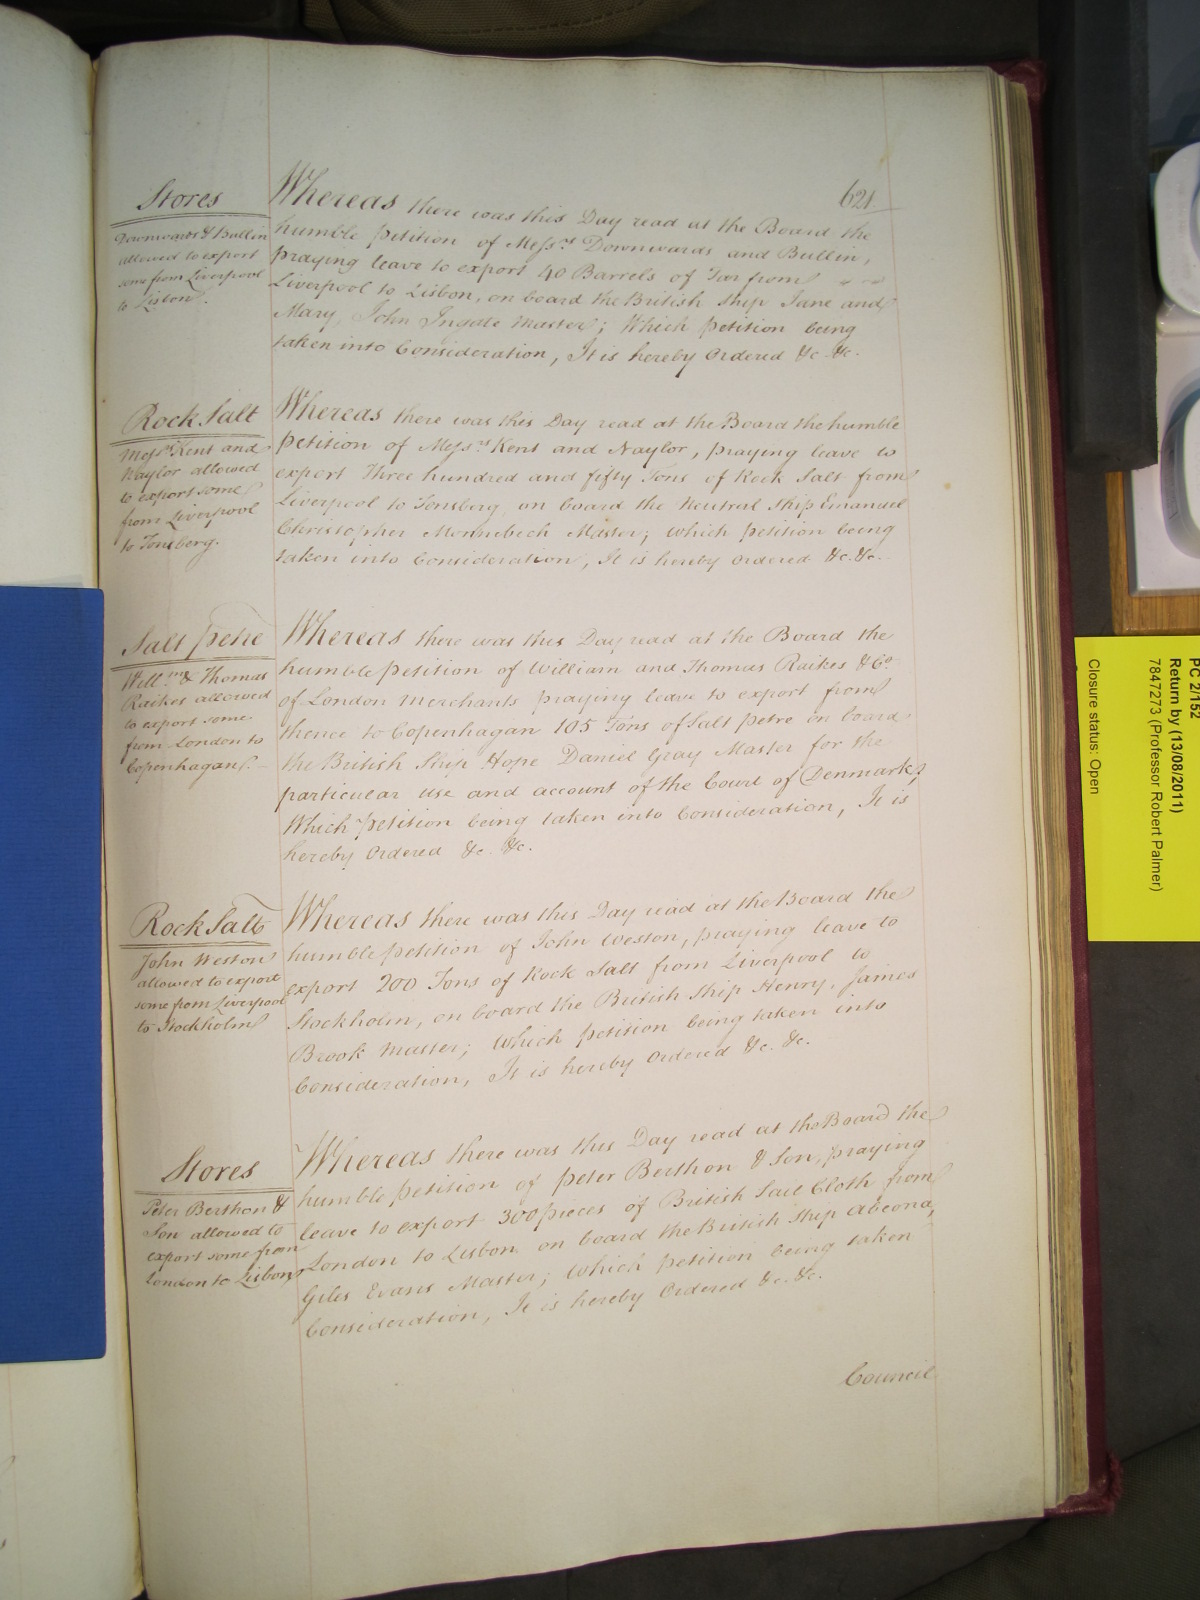 621
Stores
Downwards & Bullin
allowed to export
some from Liverpool
to Lisbon.
Whereas there was this Day read at the Board the
humble petition of Messrs Downwards and Bullin,
praying leave to export 40 Barrels of Tar from
Liverpool to Lisbon, on board the British ship Jane and
Mary, John Ingate Master; Which petition being
taken into Consideration, It is hereby Ordered &c. &c.
Rock Salt
Messrs Kent and
Naylor allowed
to export some
from Liverpool
to Tonsberg.
Whereas there was this Day read at the Board the humble
petition of Messrs Kent and Naylor, praying leave to
export Three hundred and fifty Tons of Rock Salt from
Liverpool to Tonsberg, on board the Neutral ship Emanuel
Christopher Monnebech Master; which petition being
taken into Consideration, It is hereby Ordered &c. &c.
Salt petre
Willm & Thomas
Raikes allowed
to export some
from London to
Copenhagan.
Whereas there was this Day read at the Board the
humble petition of William and Thomas Raikes & Co
of London Merchants praying leave to export from
thence to Copenhagan 105 Tons of Salt petre on board
the British Ship Hope Daniel Gray Master for the
particular use and account of the Court of Denmark;
Which petition being taken into Consideration, It is
hereby Ordered &c. &c.
Rock Salt
John Weston
allowed to export
some from Liverpool
to Stockholm
Whereas there was this Day read at the Board the
humble petition of John Weston, praying leave to
export 200 Tons of Rock Salt from Liverpool to
Stockholm, on board the British Ship Henry, James
Brook Master; Which petition being taken into
Consideration, It is hereby Ordered &c. &c.
Stores
Peter Berthon &
Son allowed to
export some from
London to Lisbon
Whereas there was this Day read at the Board the
humble petition of Peter Berthon & Son, praying
leave to export 300 pieces of British Sail Cloth from
London to Lisbon on board the British Ship Abeona,
Giles Evans Master; Which petition being taken
Consideration, It is hereby Ordered &c. &c.
Council
PC 2/152
Return by (13/08/2011)
7847273 (Professor Robert Palmer)
Closure status: Open